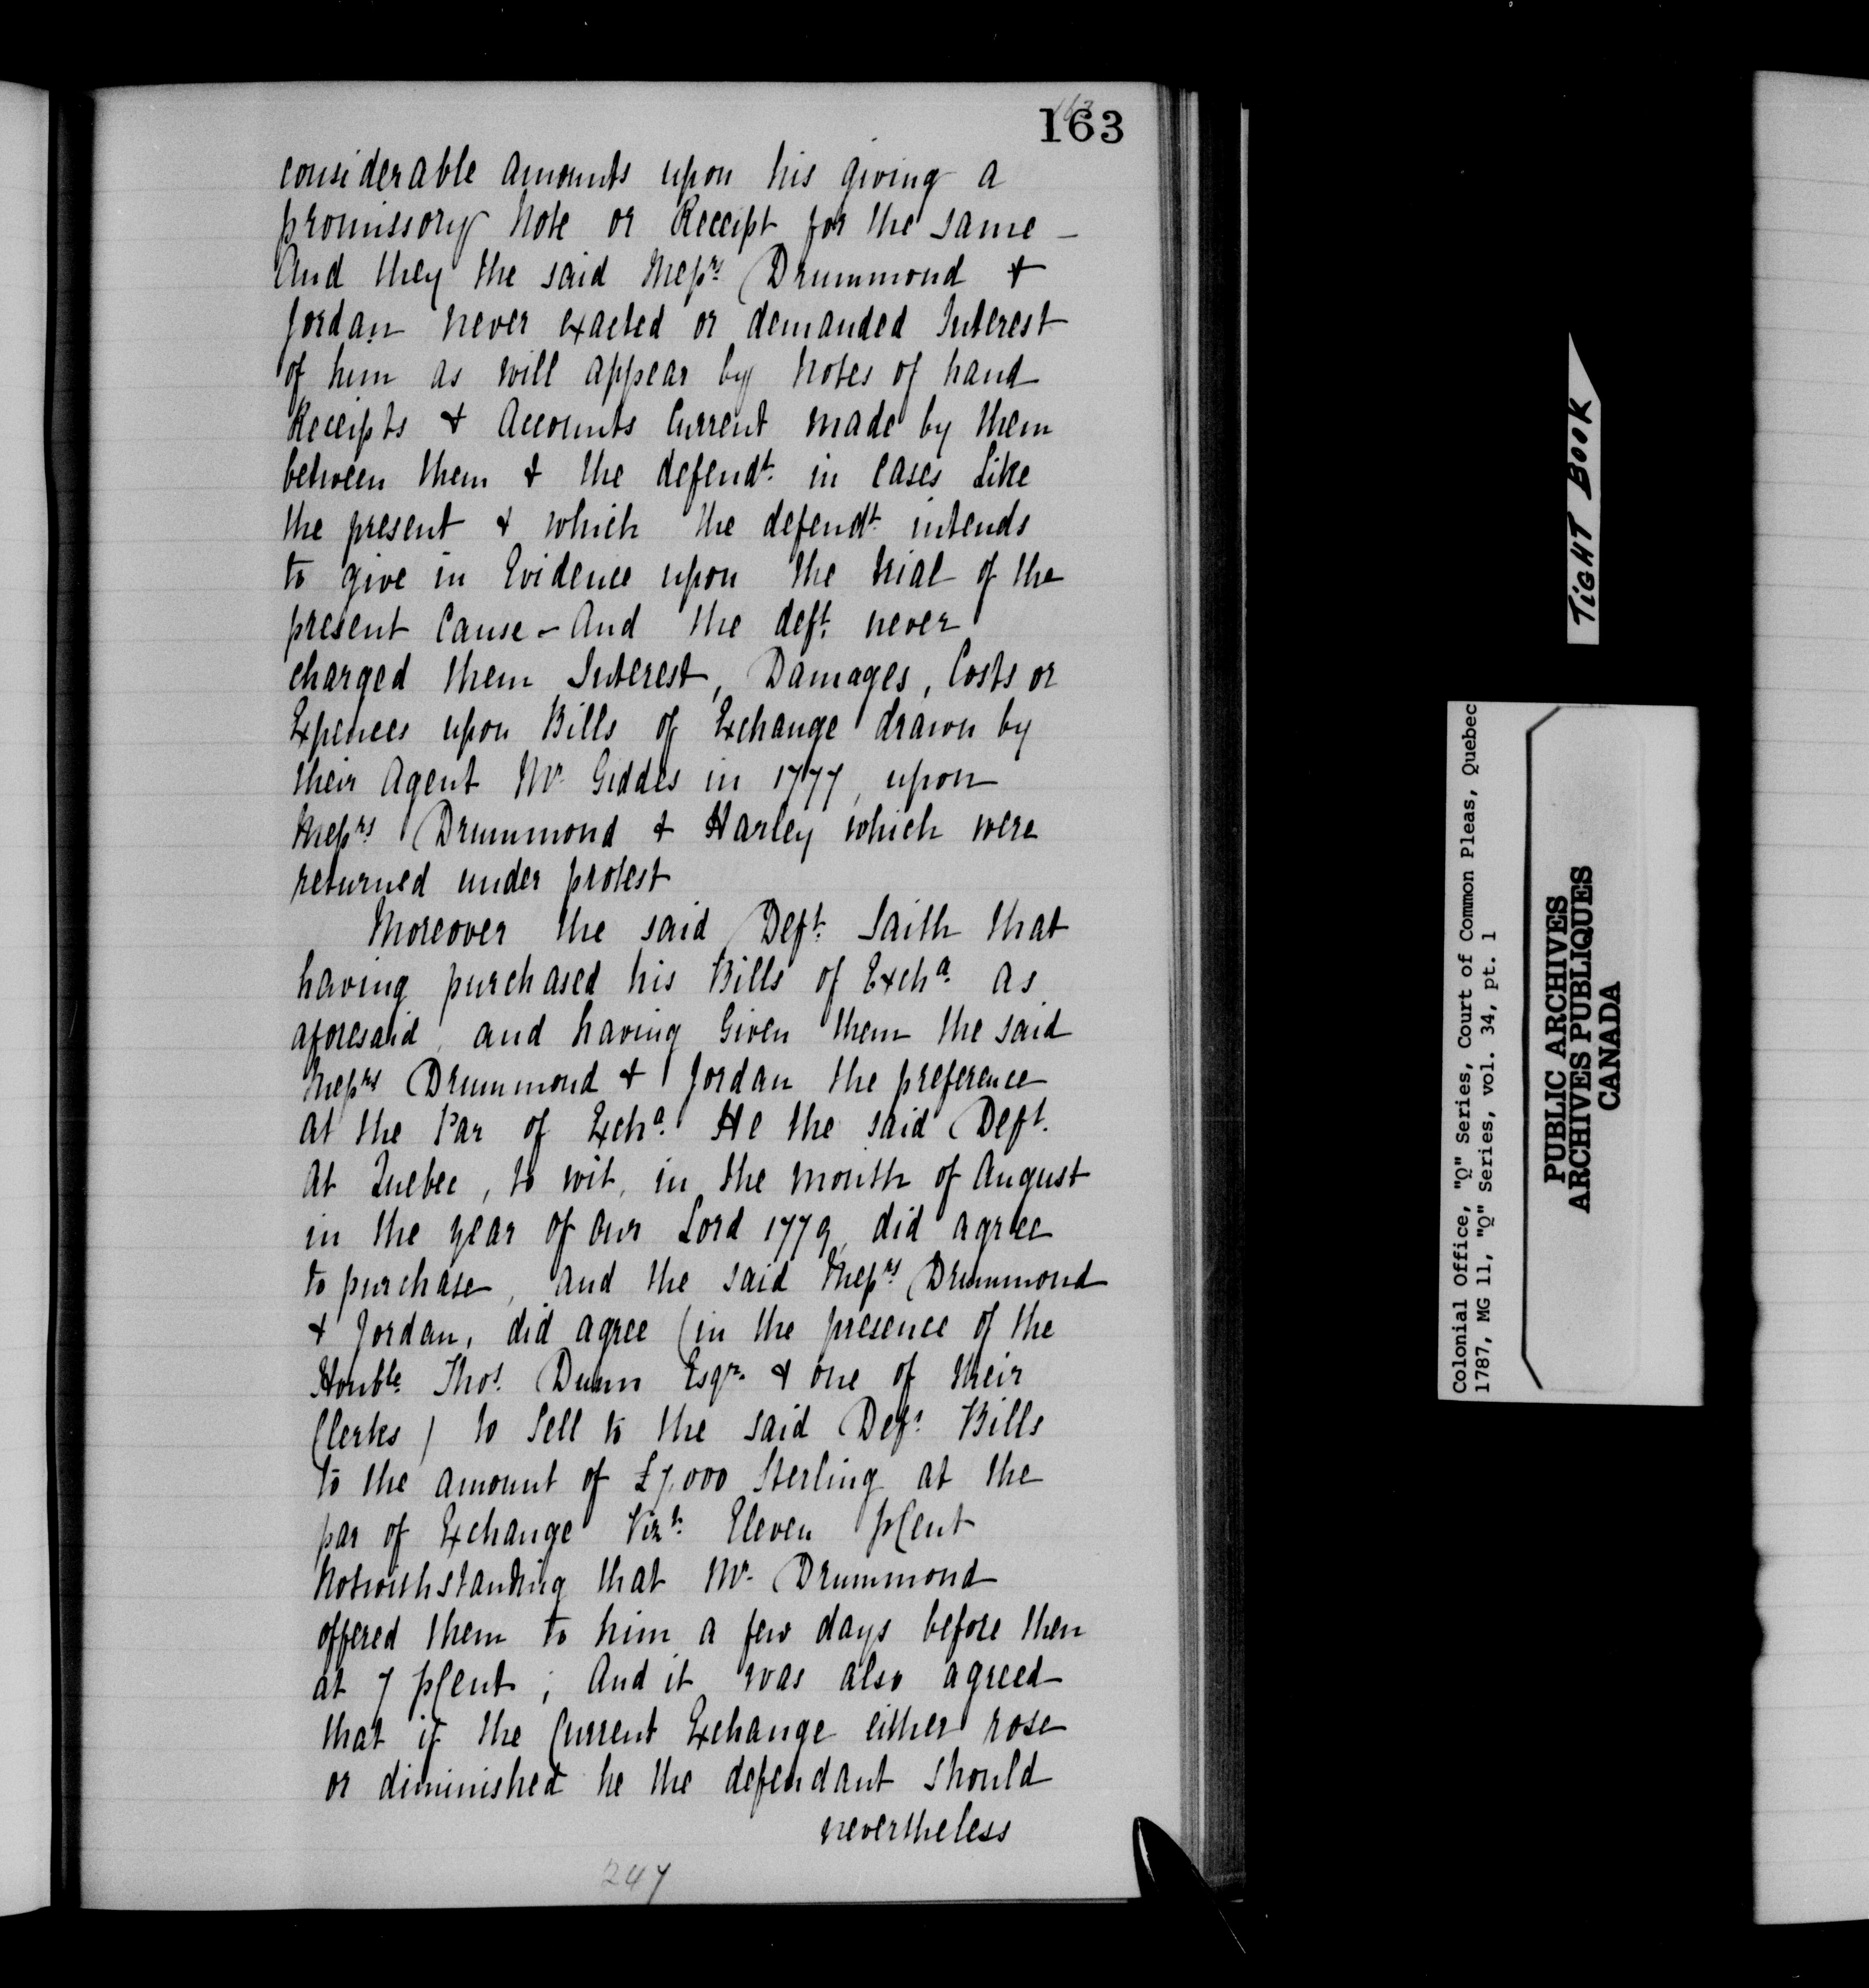 163
163
considerable amounts upon his giving a
promissory Note or Receipt for the same –
And they the said Messrs Drummond &
Jordan never exacted or demanded Interest
of him as will appear by Notes of hand
Receipts & Accounts Current made by them
between them & the defendt in cases Like
the present & which the defendt intends
to give in Evidence upon the trial of the
present Cause – And the deft never
charged them Interest, Damages, Costs or
Expences upon Bills of Exchange drawn by
their Agent Mr Geddes in 1777, upon
Messrs Drummond & Harley which were
returned under protest
Moreover the said Deft Saith that
having purchased his Bills of Excha as
aforesaid, and having Given them the said
Messrs Drummond & Jordan the preference
at the Par of Excha He the said Deft
at Quebec, to wit, in the month of August
in the year of our Lord 1779, did agree
to purchase, and the said Messrs Drummond
& Jordan, did agree (in the presence of the
Honble Thos Dunn Esqr & one of their
Clerks) to Sell to the said Deft Bills
to the amount of £7,000 Sterling at the
par of Exchange Vizt Eleven pCent
Notwithstanding that Mr Drummond
offered them to him a few days before then
at 7 pCent; And it was also agreed
that if the Current Exchange either rose
or diminished he the defendant should
nevertheless
247
TIGHT BOOK
Colonial Office, "Q" Series, Court of Common Pleas, Quebec
1787, MG 11, "Q" Series, vol. 34, pt. 1
PUBLIC ARCHIVES
ARCHIVES PUBLIQUES
CANADA